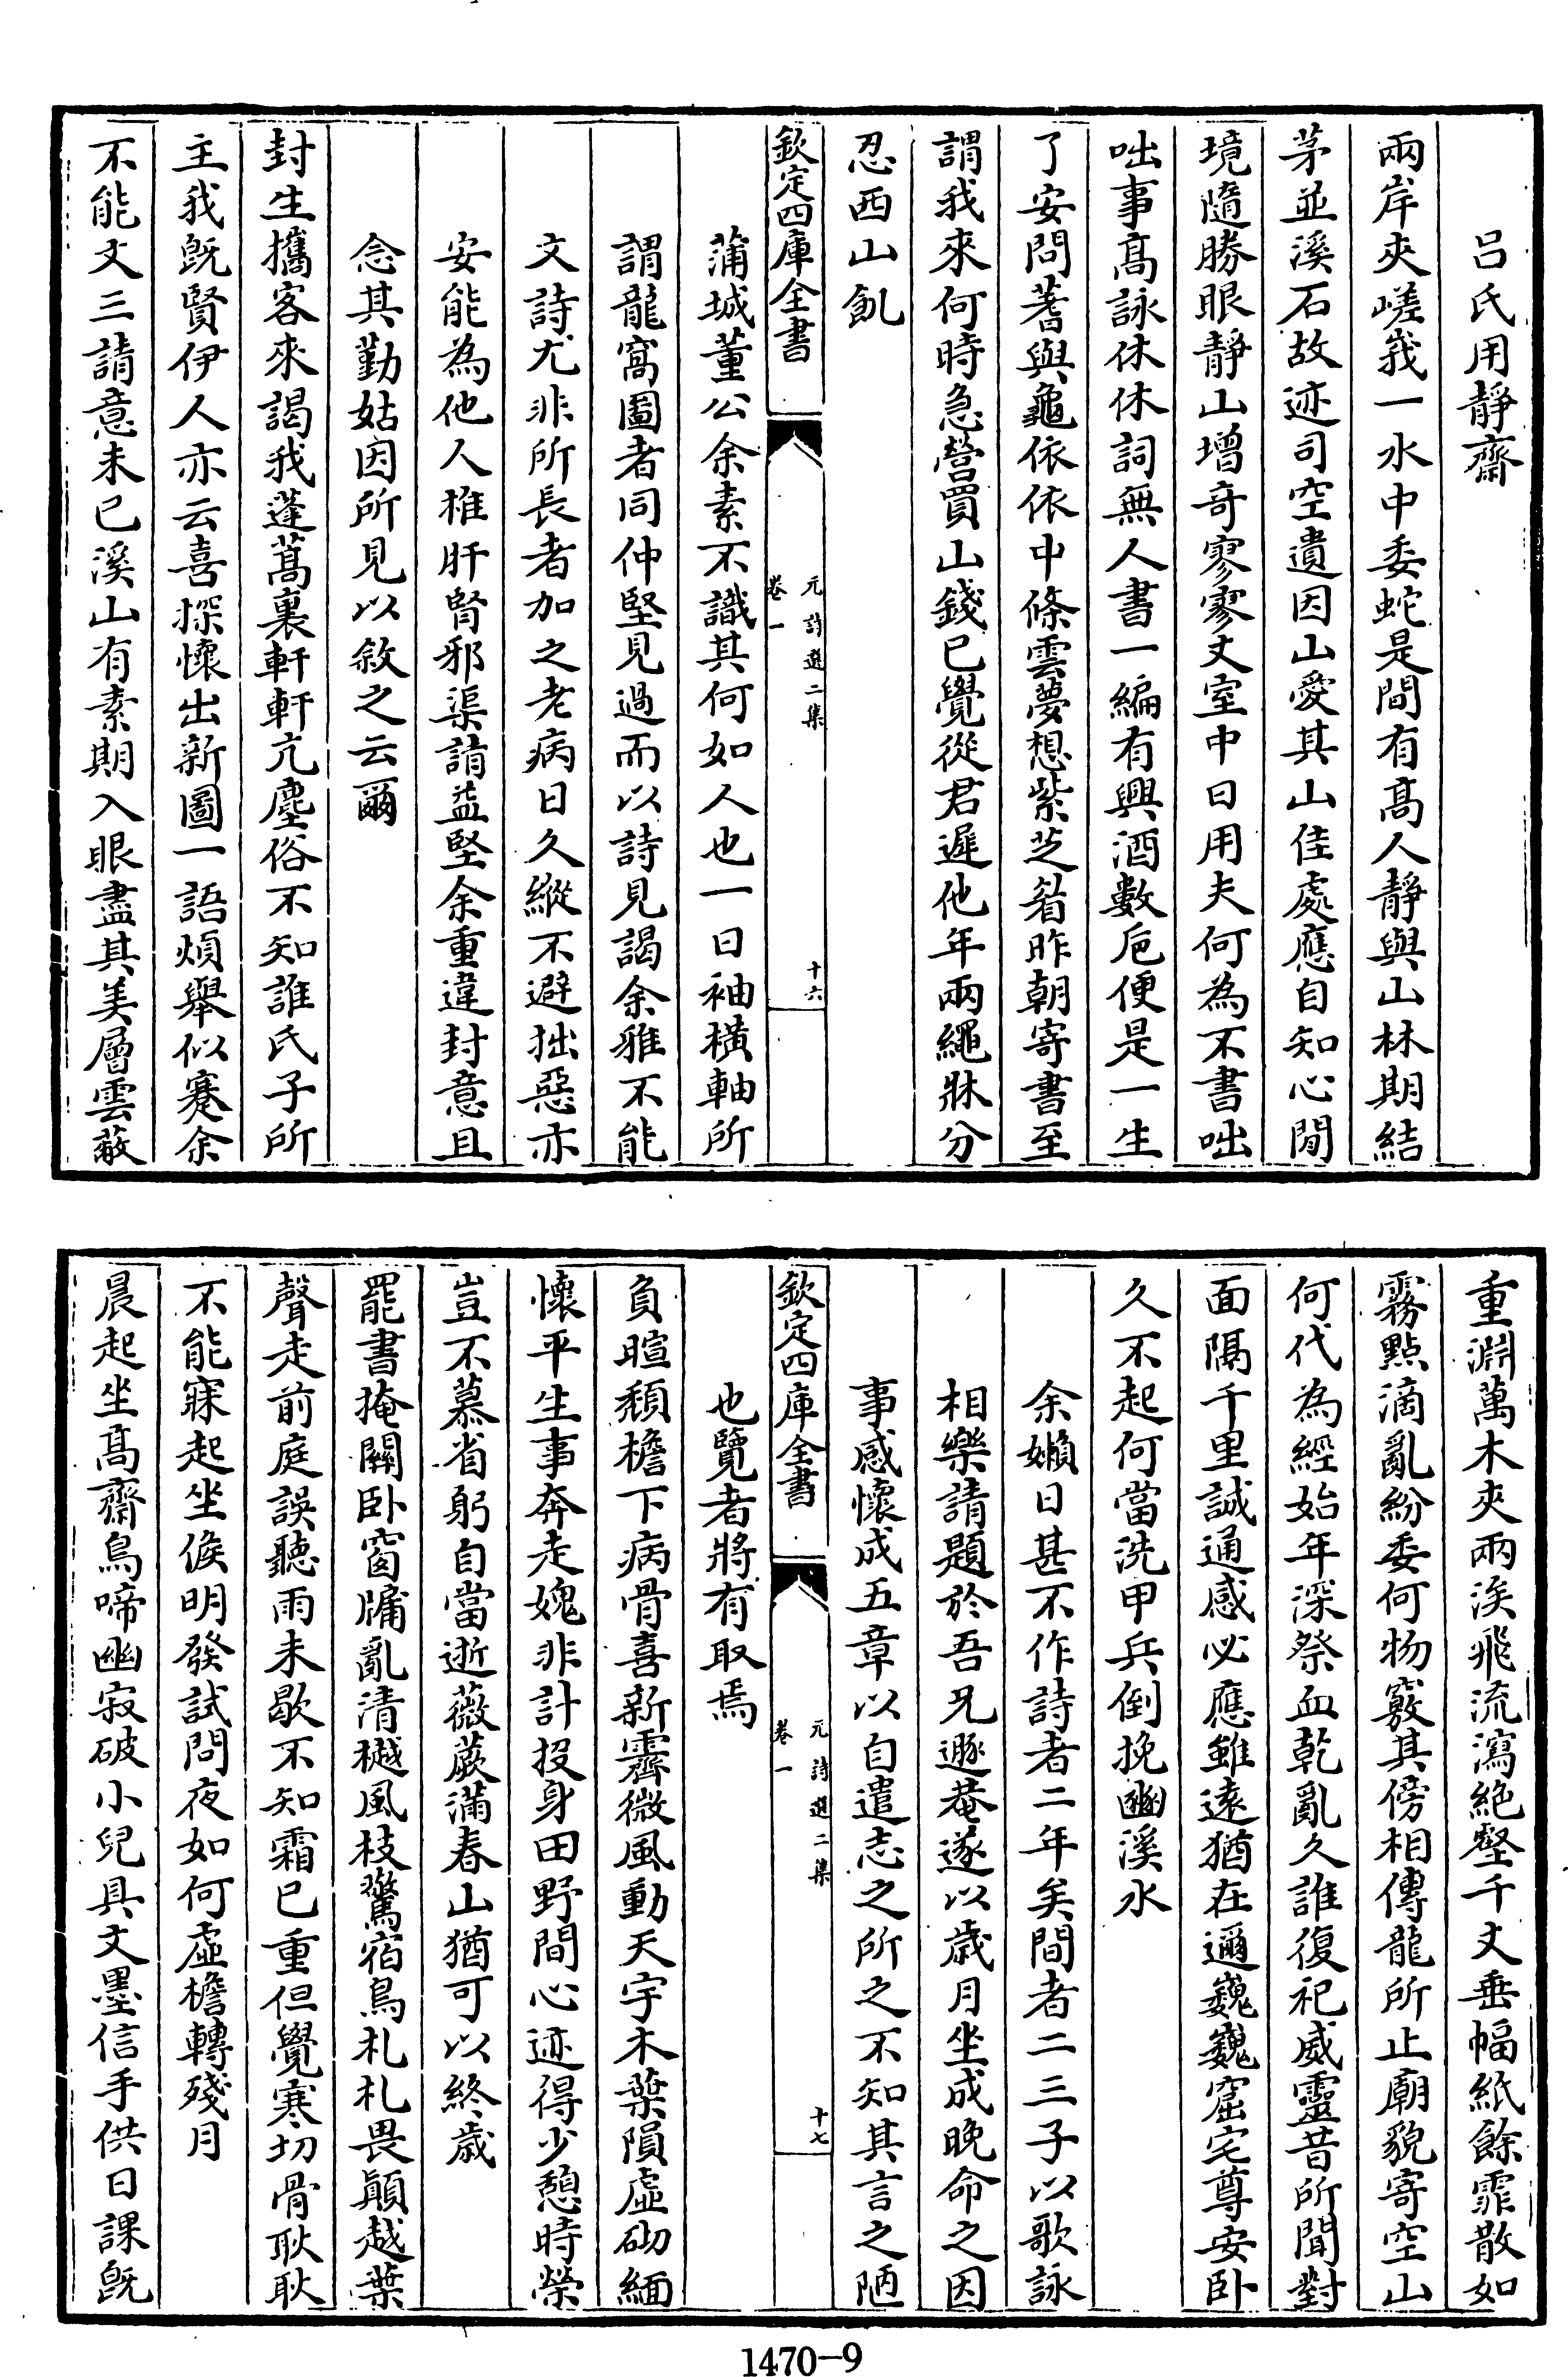 吕氏用靜齋
兩岸夾嵯峩一水中委蛇是間有髙人靜與山林期結
茅並溪石故迹司空遺因山愛其山佳處應自知心閒
境隨勝眼靜山增奇寥寥丈室中日用夫何為不書咄
咄事髙詠休休詞無人書一編有興酒數巵便是一生
了安問蓍與龜依依中條雲夢想紫芝眉昨朝寄書至
謂我來何時急營買山錢已覺從君遲他年兩繩牀分
忍西山飢
欽定四庫全書
元詩選二集
卷一
十六
蒲城董公余素不識其何如人也一日袖橫軸所
謂龍窩圖者同仲堅見過而以詩見謁余雅不能
文詩尤非所長者加之老病日久縱不避拙惡亦
安能為他人椎肝腎邪渠請益堅余重違封意且
念其勤姑因所見以敘之云爾
封生攜客來謁我蓬蒿裏軒軒亢塵俗不知誰氏子所
主我旣賢伊人亦云喜探懷出新圖一語煩舉似蹇余
不能文三請意未已溪山有素期入眼盡其美層雲蔽
重淵萬木夾兩涘飛流瀉絶壑千丈垂幅紙餘霏散如
霧點滴亂紛委何物竅其傍相傳龍所止廟貌寄空山
何代為經始年深祭血乾亂久誰復祀威靈昔所聞對
面隔千里誠通感必應雖遠猶在邇巍巍窟宅尊安卧
久不起何當洗甲兵倒挽豳溪水
余嬾日甚不作詩者二年矣間者二三子以歌詠
相樂請題於吾兄遯菴遂以歲月坐成晚命之因
事感懷成五章以自遣志之所之不知其言之陋
欽定四庫全書
元詩選二集
卷一
十七
也覽者將有取焉
負暄頹檐下病骨喜新霽微風動天宇木葉隕虛砌緬
懷平生事奔走媿非計投身田野間心迹得少憩時榮
豈不慕省躬自當逝薇蕨滿春山猶可以終歲
罷書掩關卧窗牖亂清樾風枝驚宿鳥札札畏顚越葉
聲走前庭誤聽雨未歇不知霜已重但覺寒切骨耿耿
不能寐起坐俟明發試問夜如何虛檐轉殘月
晨起坐髙齋鳥啼幽寂破小兒具文墨信手供日課旣
1470—9